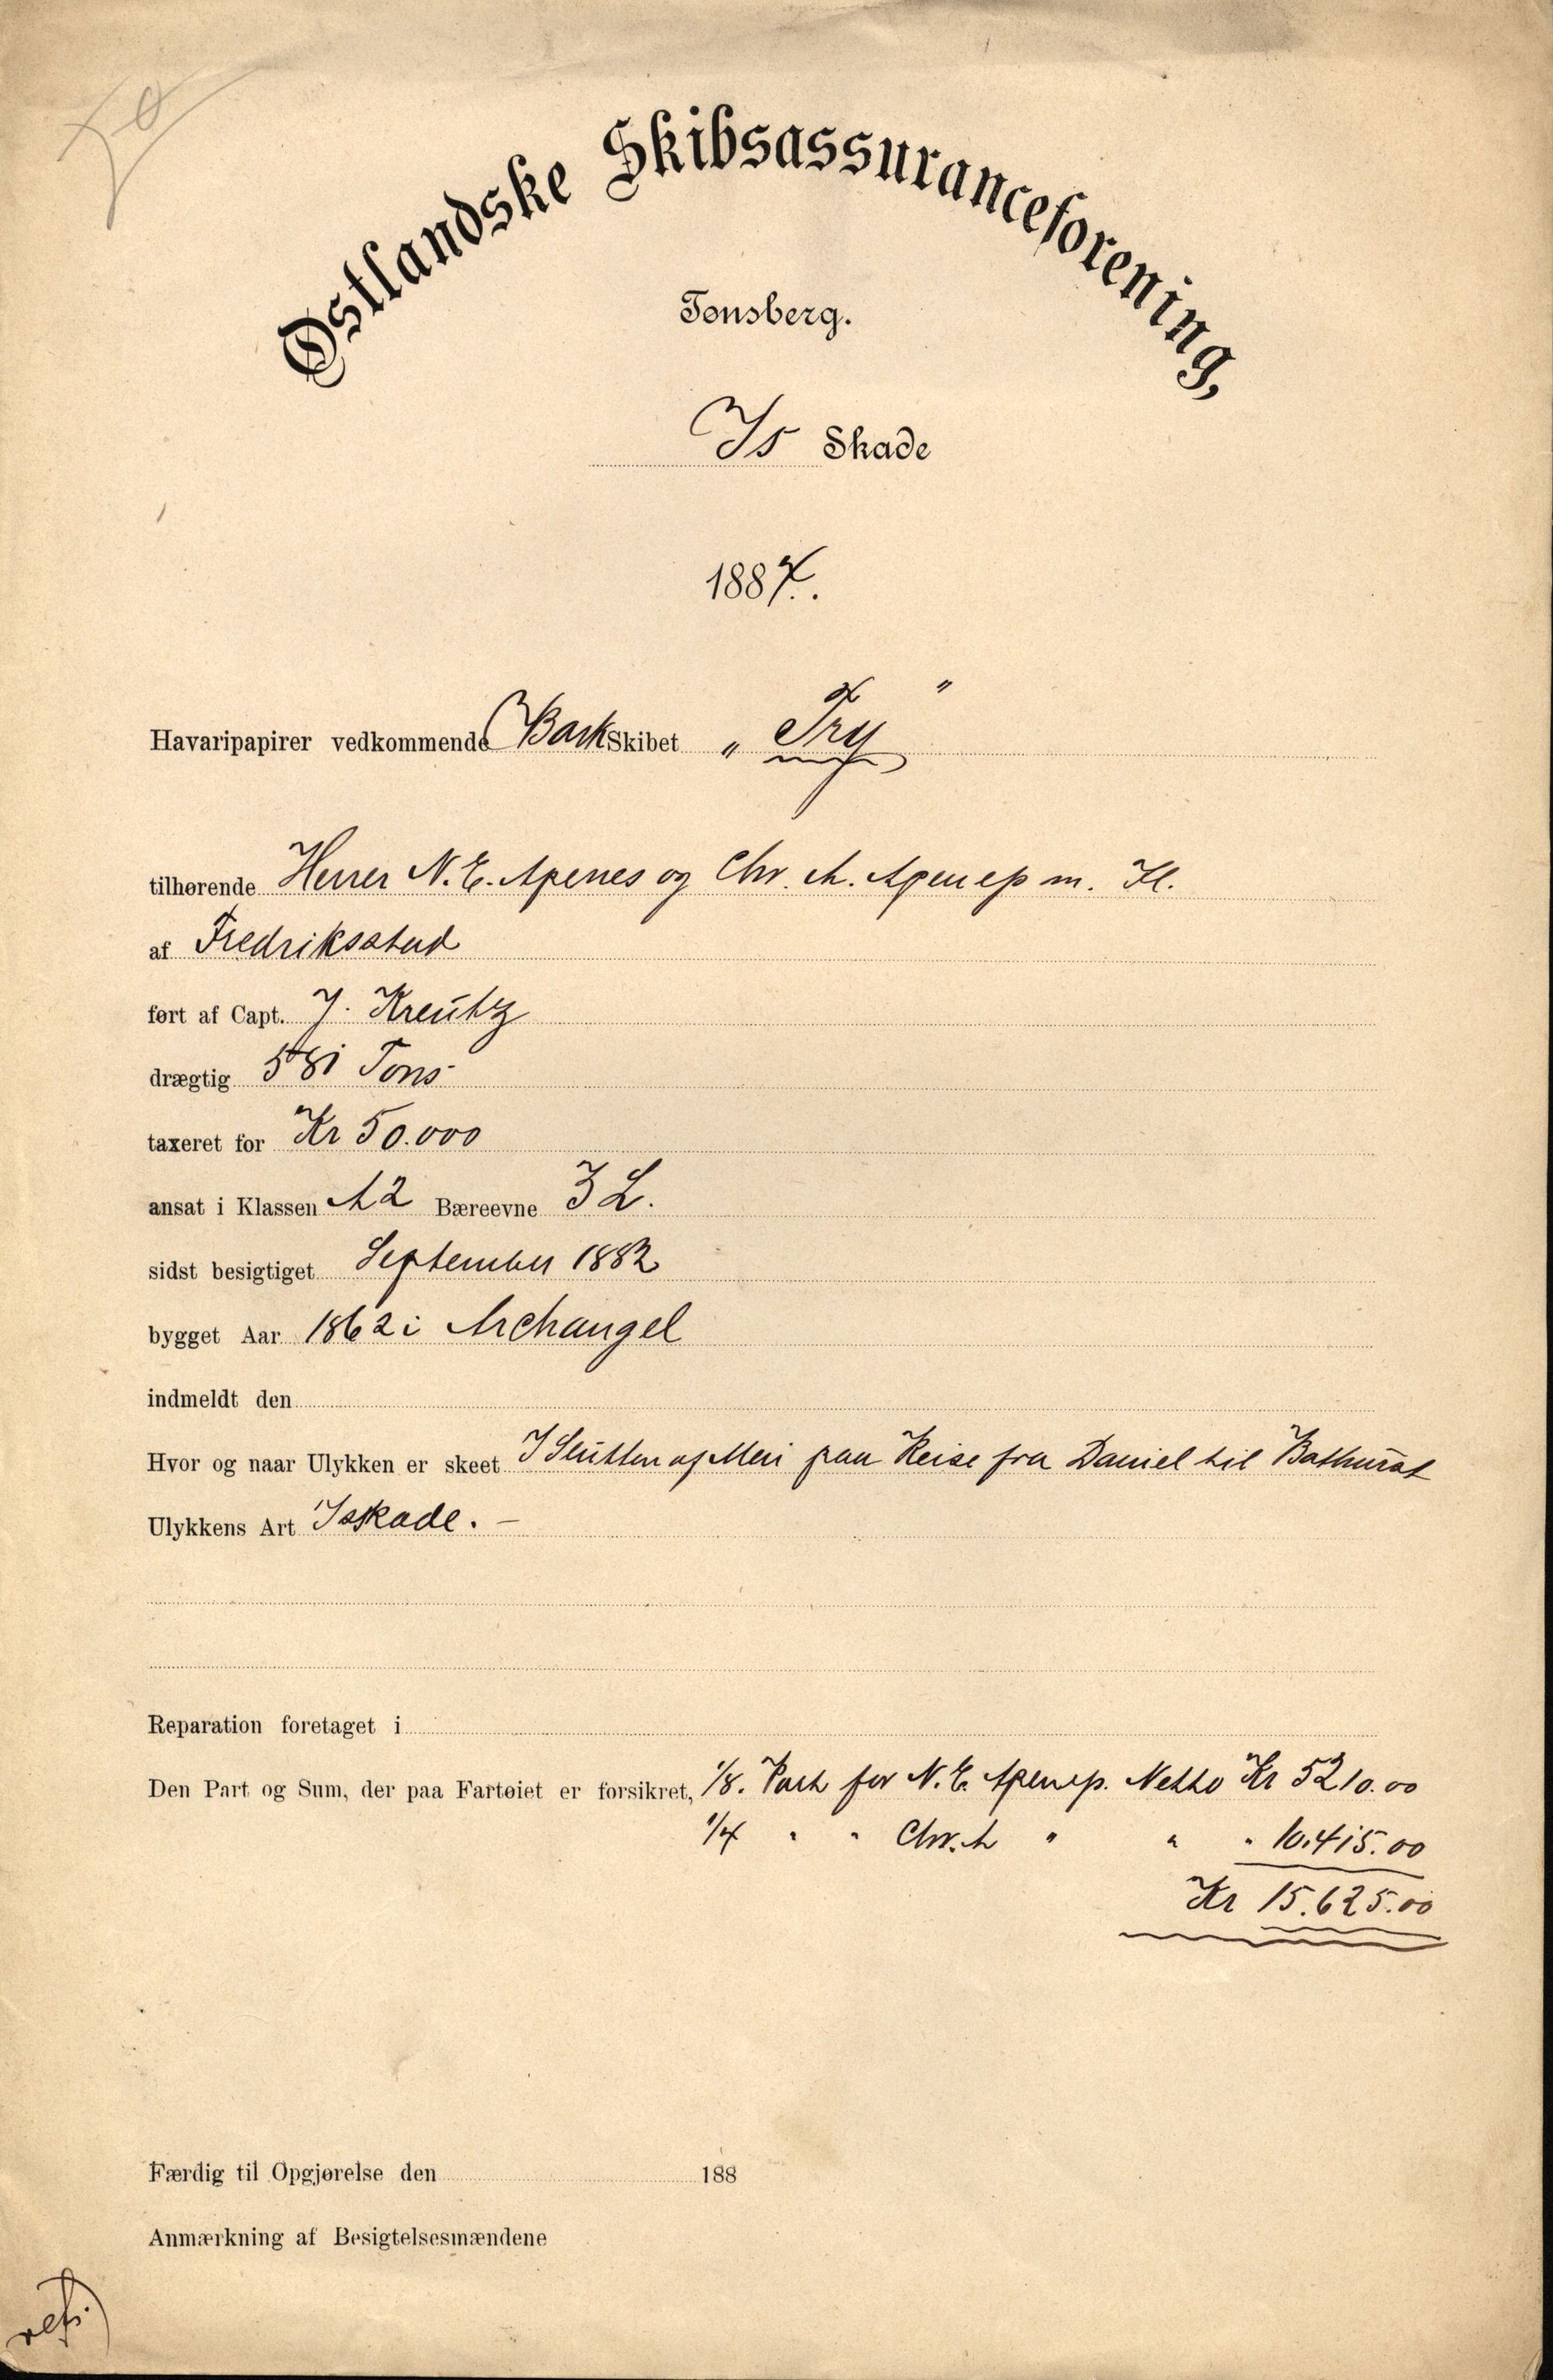 Østlandske Skibsassuranceforening,
Tønsberg.
Is Skade
1884.
Havaripapirer vedkommende Bark Skibet „Try"
tilhørende Herrer N. E. Apenes og Chr. A. Apenes m. Fl.
af Fredriksstad
ført af Capt. J. Kreutz
drægtig 581 Tons
taxeret for Kr 50.000
ansat i Klassen A2 Bæreevne 3 L.
sidst besigtiget September 1882
bygget Aar 1862 i Archangel
indmeldt den
Hvor og naar Ulykken er skeet I Slutten af Mai paa Reise fra Daniel til Bathurst
Ulykkens Art Isskade. –
Reparation foretaget i
Den Part og Sum, der paa Fartøiet er forsikret, 1/8. Part for N. E. Apenes. Netto Kr 5210.00
1/4 " " Chr. A " " " 10.415.00
Kr 15.625.00
Færdig til Opgjørelse den 188
Anmærkning af Besigtelsesmændene